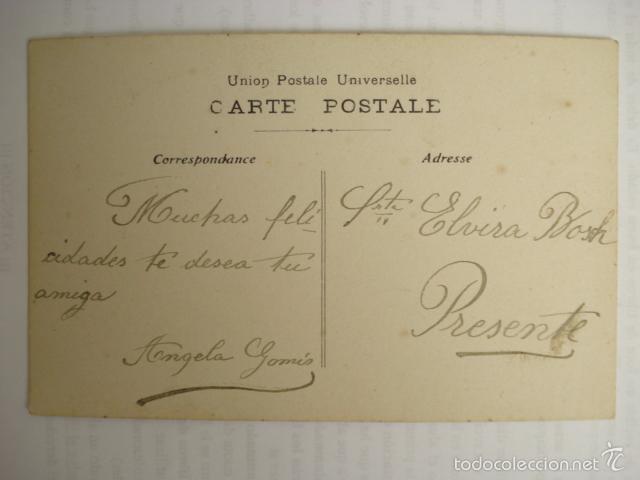 Union Postale Universelle
CARTE POSTALE
Correspondance
Adresse
Muchas feli
cidades te desea tu
amiga
Angela Gomis
Srta Elvira Bosch
Presente
todocoleccion.net